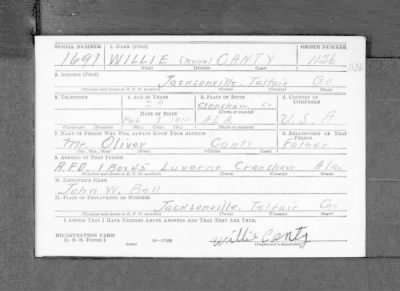 SERIAL NUMBER 1. NAME (Print) ORDER NUMBER
1697 WILLIE (none) CANTY 1136
1136
(First) (Middle) (Last)
2. ADDRESS (Print)
Jacksonville, Telfair Ga.
(Number and street or R. F. D. number) (Town) (County) (State)
3. TELEPHONE 4. AGE IN YEARS 5. PLACE OF BIRTH 6. COUNTRY OF CITIZENSHIP
29 Crenshaw Co
DATE OF BIRTH (Town or county)
Feb ALA. U.S.A
(Exchange) (No.) (Mo.) (Day) (Yr.) (State or country)
7. NAME OF PERSON WHO WILL ALWAYS KNOW YOUR ADDRESS 8. RELATIONSHIP OF THAT PERSON
Mr. Oliver Canty Father
(Mr., Mrs., Miss) (First) (Middle) (Last)
9. ADDRESS OF THAT PERSON
R.F.D. 1 Box 45 Luverne Crenshaw Ala
(Number and street or R. F. D. number) (Town) (County) (State)
10. EMPLOYER'S NAME
John W. Bell
11. PLACE OF EMPLOYMENT OR BUSINESS
Jacksonville, Telfair Ga
(Number and street or R. F. D. number) (Town) (County) (State)
I AFFIRM THAT I HAVE VERIFIED ABOVE ANSWERS AND THAT THEY ARE TRUE.
REGISTRATION CARD
D. S. S. Form 1
Willie Canty
(Registrant's signature)